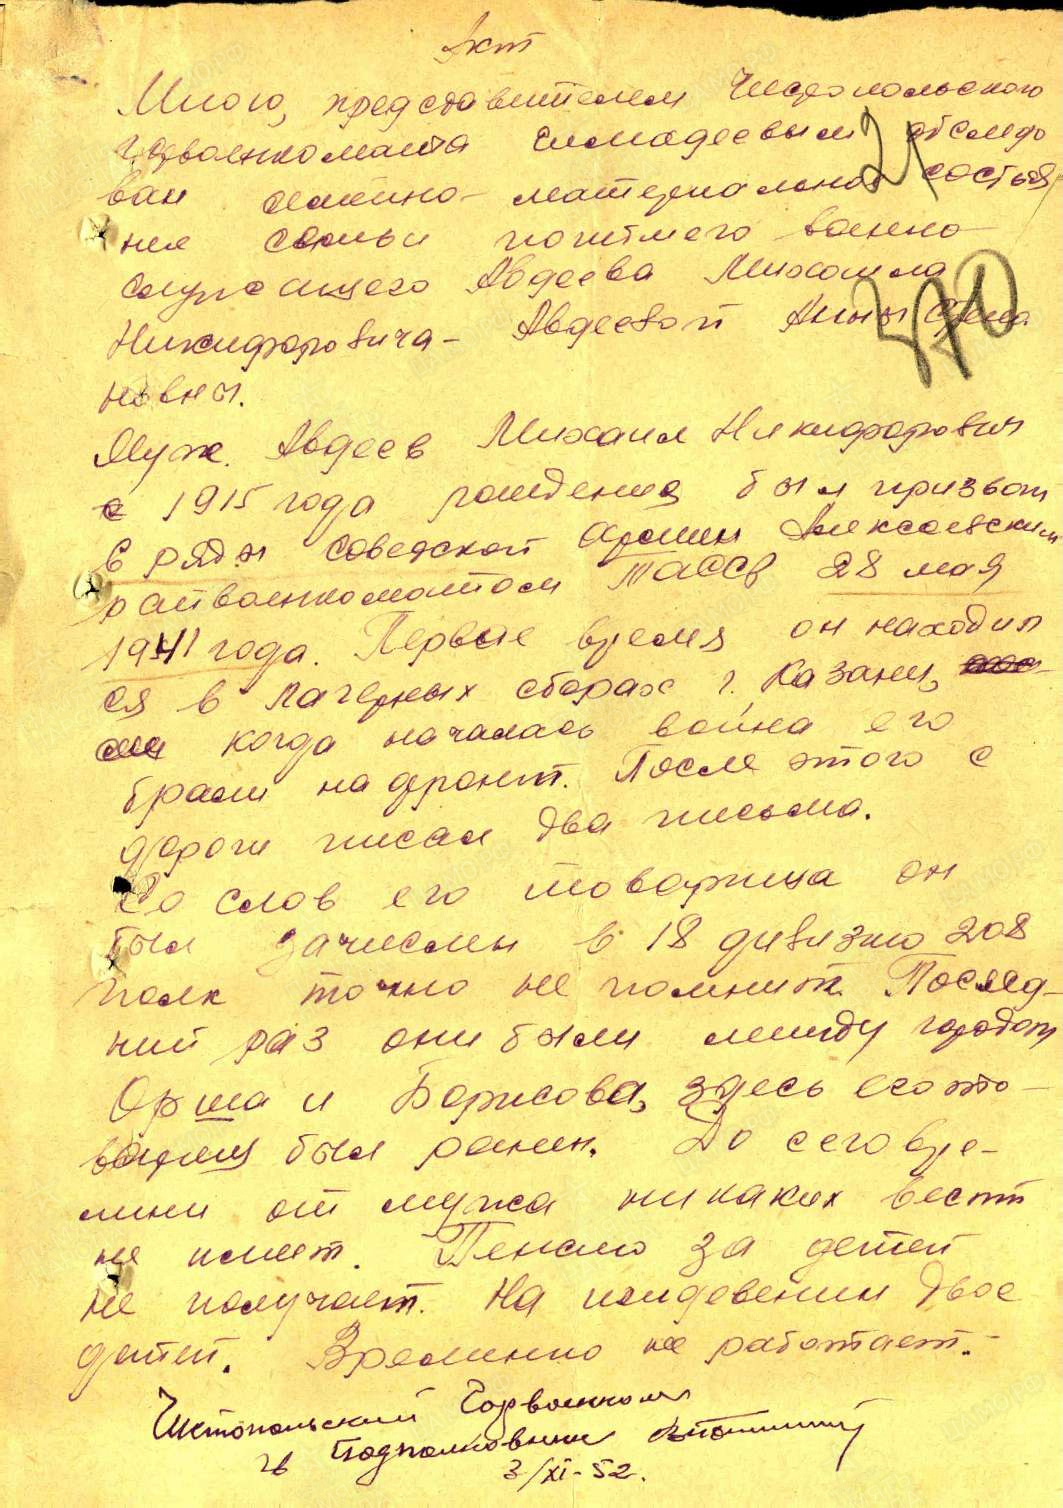 Акт
Мною, представителем Чистопольского
горвоенкомата обследо
ван семейно- материальное состоя
ние семьи погибшего военно
служащего Авдеева Михаила
Никифоровича- Авдеевой Анны Степа
новны.
Муж. Авдеев Михаил Никифорович
с 1915 года рождения был призван
в ряды советской армии Алексеевским
райвоенкоматом ТАССР 28 мая
1941 года. Первое время он находил
ся в лагерных сборах г. Казани,
когда началась война его
брали на фронт. После этого с
дороги писал два письма.
Со слов его товарища он
был зачислен в 18 дивизию 208
полк точно не помнит. Послед-
ний раз они были между городом
Орша и Борисова, здесь его то-
варищ был ранен. До сего вре-
мини от мужа никаких вестей
не имеет. Пенсию за детей
не получает. На иждевении двое
детей. Временно не работает.-
Чистопольский Горвоенком
Подполковник
3/XI-52.
370